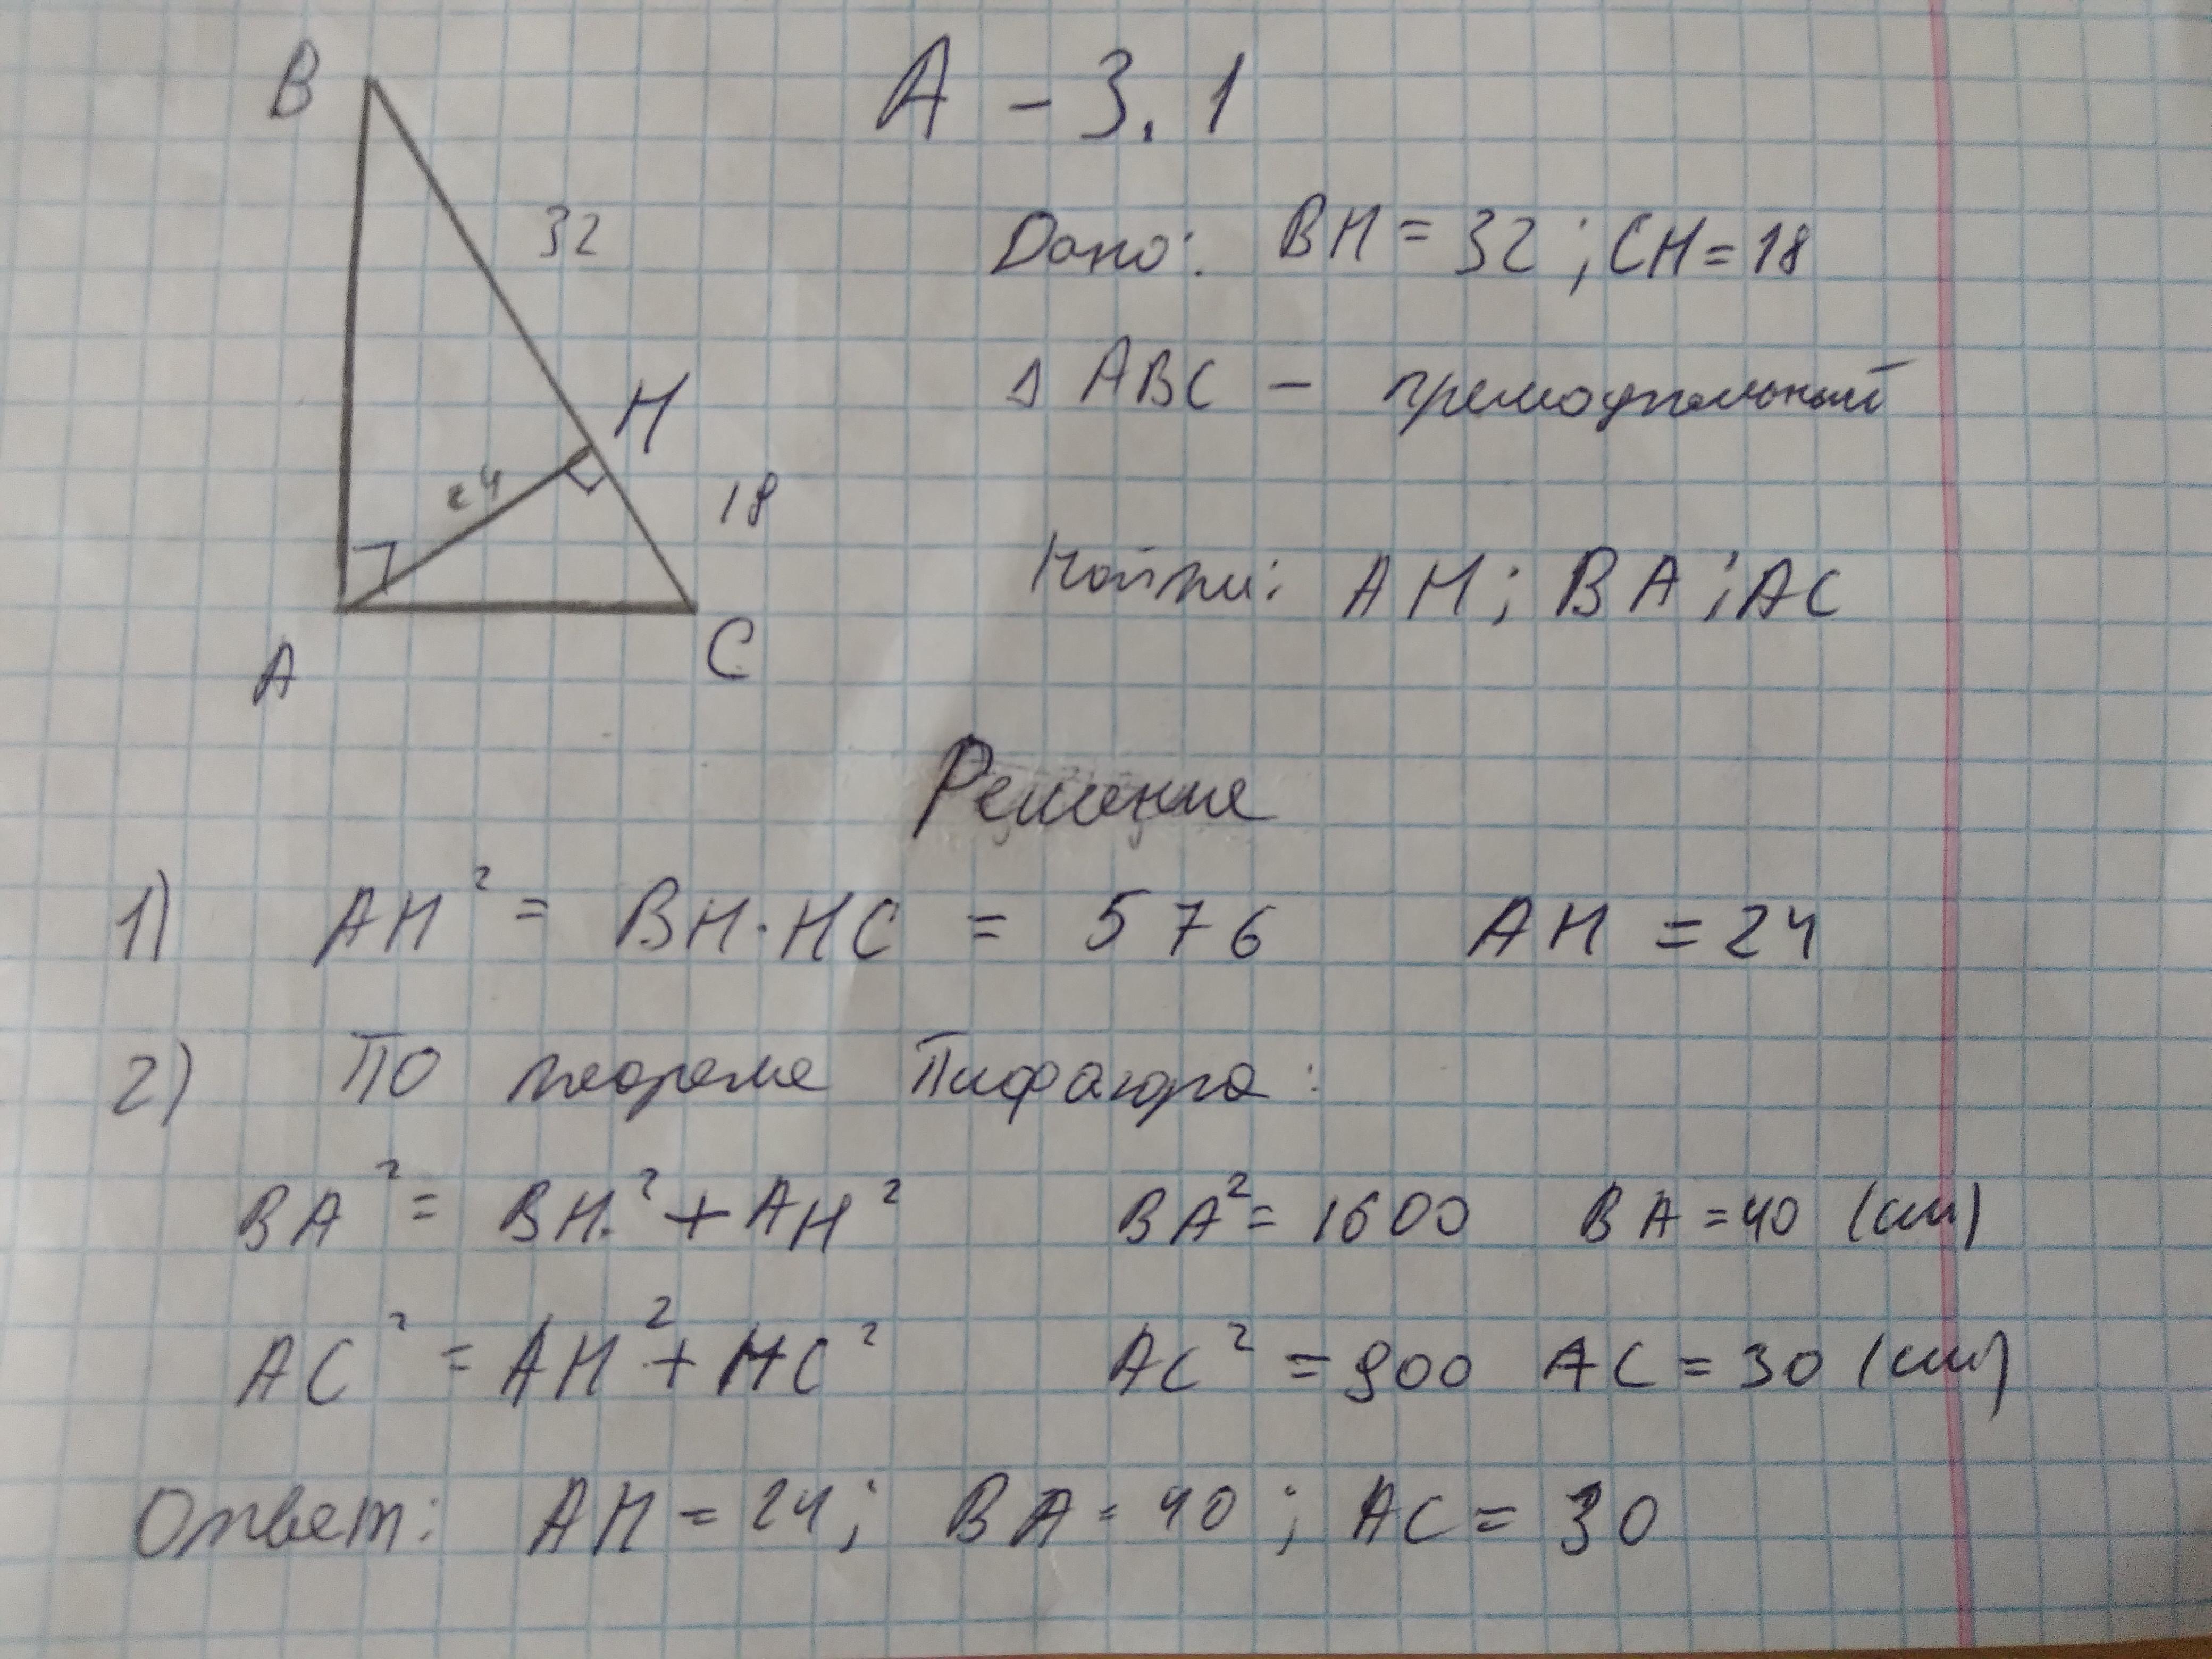 А – 3.1
B
32
Дано: BH = 32; CH = 18
Δ ABC – премоугольный
H
24
18
Найти: AH; BA; AC
A
C
Решение
1) AH² = BH·HC = 576 AH = 24
2) ПО теореме Пифагора:
BA² = BH² + AH² BA² = 1600 BA = 40 (см)
AC² = AH² + HC² AC² = 900 AC = 30 (см)
Ответ: AH = 24; BA = 40; AC = 30